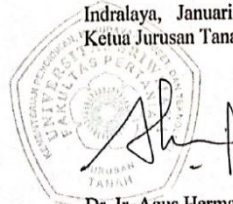 Indralaya, Januari
Ketua Jurusan Tana
FAKULTAS PERT
JURUSAN
TANAH
Dr. Ir. Agus Herma